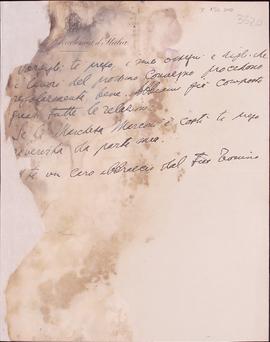 Accademia d'Italia
3620
ti prego, i miei ossequi e digli che
i lavori del prossimo Convegno procedono
regolarmente bene. Abbiamo già composto
quasi tutte le relazioni.
Se la Marchesa Marconi è costì ti prego
da parte mia.
ti un caro abbraccio dal tuo